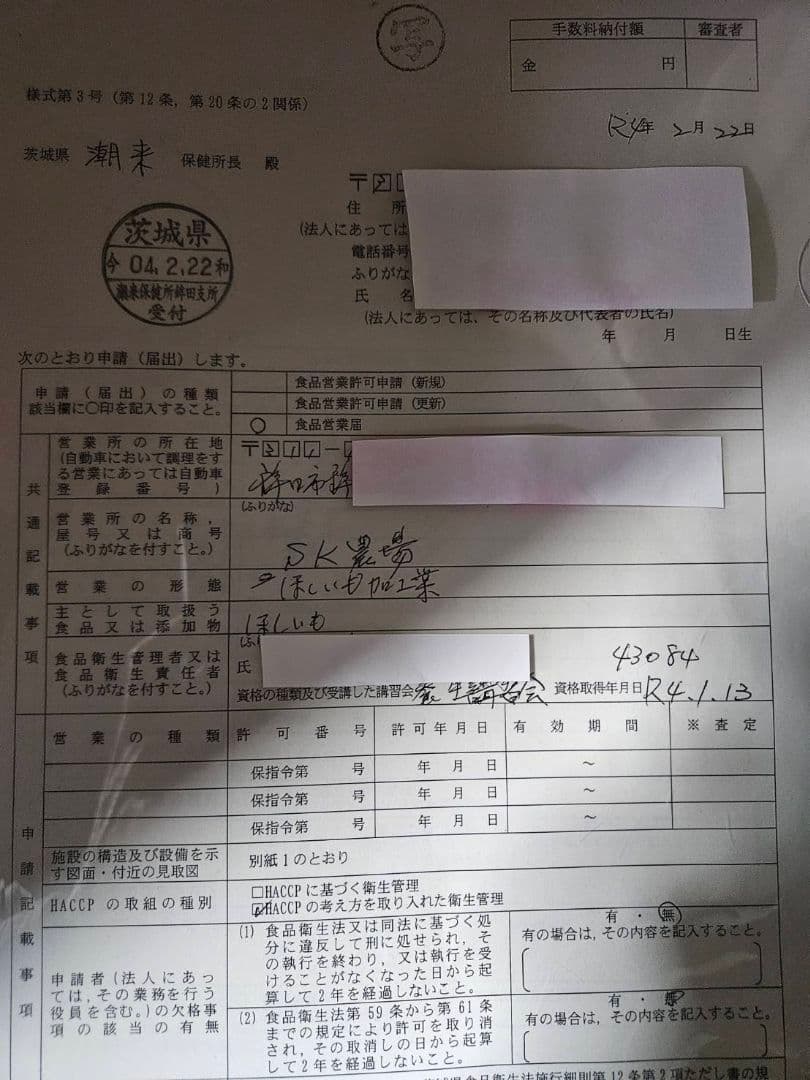 手数料納付額 審査者
金 円
様式第3号（第12条，第20条の2関係）
R4年 2月 22日
茨城県 潮来 保健所長 殿
茨城県
令 04.2.22 和
潮来保健所鉾田支所
受付
〒3
住 所
（法人にあっては
電話番号
ふりがな
氏 名
（法人にあっては，その名称及び代表者の氏名）
年 月 日生
次のとおり申請（届出）します。
申請（届出）の種類
該当欄に〇印を記入すること。
食品営業許可申請（新規）
食品営業許可申請（更新）
〇 食品営業届
共通記載事項
営業所の所在地
（自動車において調理をす
る営業にあっては自動車
登録番号）
〒311-
鉾田市鉾
営業所の名称，
屋号又は商号
（ふりがなを付すこと。）
（ふりがな）
SK農場
営業の形態
ほしいも加工業
主として取扱う
食品又は添加物
ほしいも
食品衛生管理者又は
食品衛生責任者
（ふりがなを付すこと。）
（ふり
氏
43084
資格の種類及び受講した講習会 養生講習会 資格取得年月日 R4.1.13
申請記載事項
営業の種類 許可番号 許可年月日 有効期間 ※査定
保指令第 号 年 月 日 ～
保指令第 号 年 月 日 ～
保指令第 号 年 月 日 ～
施設の構造及び設備を示
す図面・付近の見取図
別紙1のとおり
HACCPの取組の種別
□HACCPに基づく衛生管理
☑HACCPの考え方を取り入れた衛生管理
申請者（法人にあっ
ては，その業務を行う
役員を含む。）の欠格事
項の該当の有無
(1) 食品衛生法又は同法に基づく処
分に違反して刑に処せられ，そ
の執行を終わり，又は執行を受
けることがなくなった日から起
算して2年を経過しないこと。
有 ・ 無
有の場合は，その内容を記入すること。
(2) 食品衛生法第59条から第61条
までの規定により許可を取り消
され，その取消しの日から起算
して2年を経過しないこと。
有 ・ 無
有の場合は，その内容を記入すること。
茨城県食品衛生法施行細則第12条第2項ただし書の規